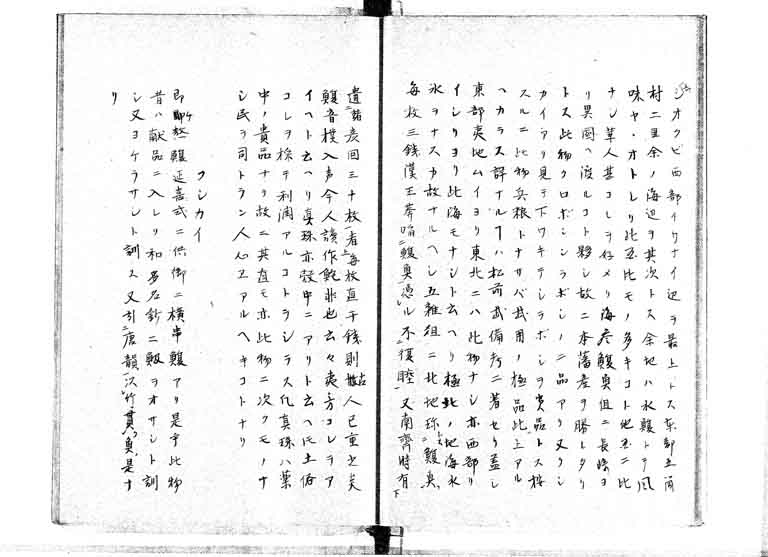 シオクビ西部イクナイ辺ヲ最上トス東部立
村二里余ノ海辺ヲ其次トス余地ハ水鰒トテ風
味ヤヽオトレリ此至比モノ多キコト他至ニ比
ナシ華人甚コレヲ好メリ海参鰒奥俱ニ長崎ヨ
リ異國ヘ渡ルコト夥シ故ニ本藩産ヲ勝レタリ
トス此物クロボシシラボシノ二品アリ又クシ
カイアリ見テ下ワキテシラボシヲ賞品トス按
スルニ此物兵粮トナサバ武用ノ極品此上アル
ヘカラス詳ナルヿハ松前武備考ニ著セリ蓋シ
東部夷地ムイヨリ東北ニハ此物ナシ亦西部リ
イシリヨリ此海モナシト云ヘリ極北ノ地海水
氷ヲナス力故ナルヘシ五雜俎ニ北地珎鰒魚
毎枚三錢漢王莽啗鰒奥憑几不復睡又南齊時有
遺諸彦回三十枚者毎枚直千錢則古人已重之矣
鰒音樸入声今人讀作鮑非也云々夷方コレヲア
イヘト云ヘリ真珠亦殻中ニアリト云ヘ𪜈土俗
コレヲ採テ利潤アルコトヲシラス凡真珠ハ藥
中ノ貴品ナリ故ニ其直モ亦比物ニ次クモノナ
シ民ヲ司トラン人心エアルヘキコトナリ
クシカイ
即 鰒延喜式ニ供御ニ横串鰒アリ是乎比物
昔ハ献品ニ入レリ和多名鈔ニ鰒ヲオサシト訓
シ又ヨケラサシト訓ス又引唐韻次竹貫魚是ナ
リ